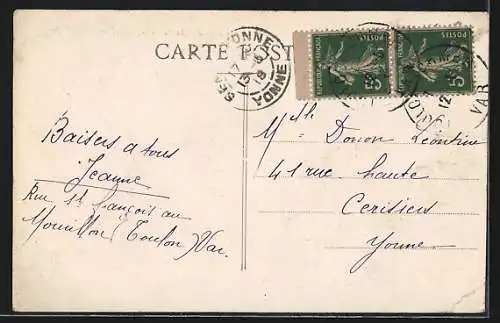 CARTE POSTALE
YONNE
RÉPUBLIQUE FRANÇAISE
5c
POSTES
RÉPUBLIQUE FRANÇAISE
5c
POSTES
TOULON
12
VAR
Baisers a tous
Jeanne
Rue St françois au
Mourillon (Toulon) Var.
Mlle Donon Léontine
41 rue haute
Cerisiers
Yonne